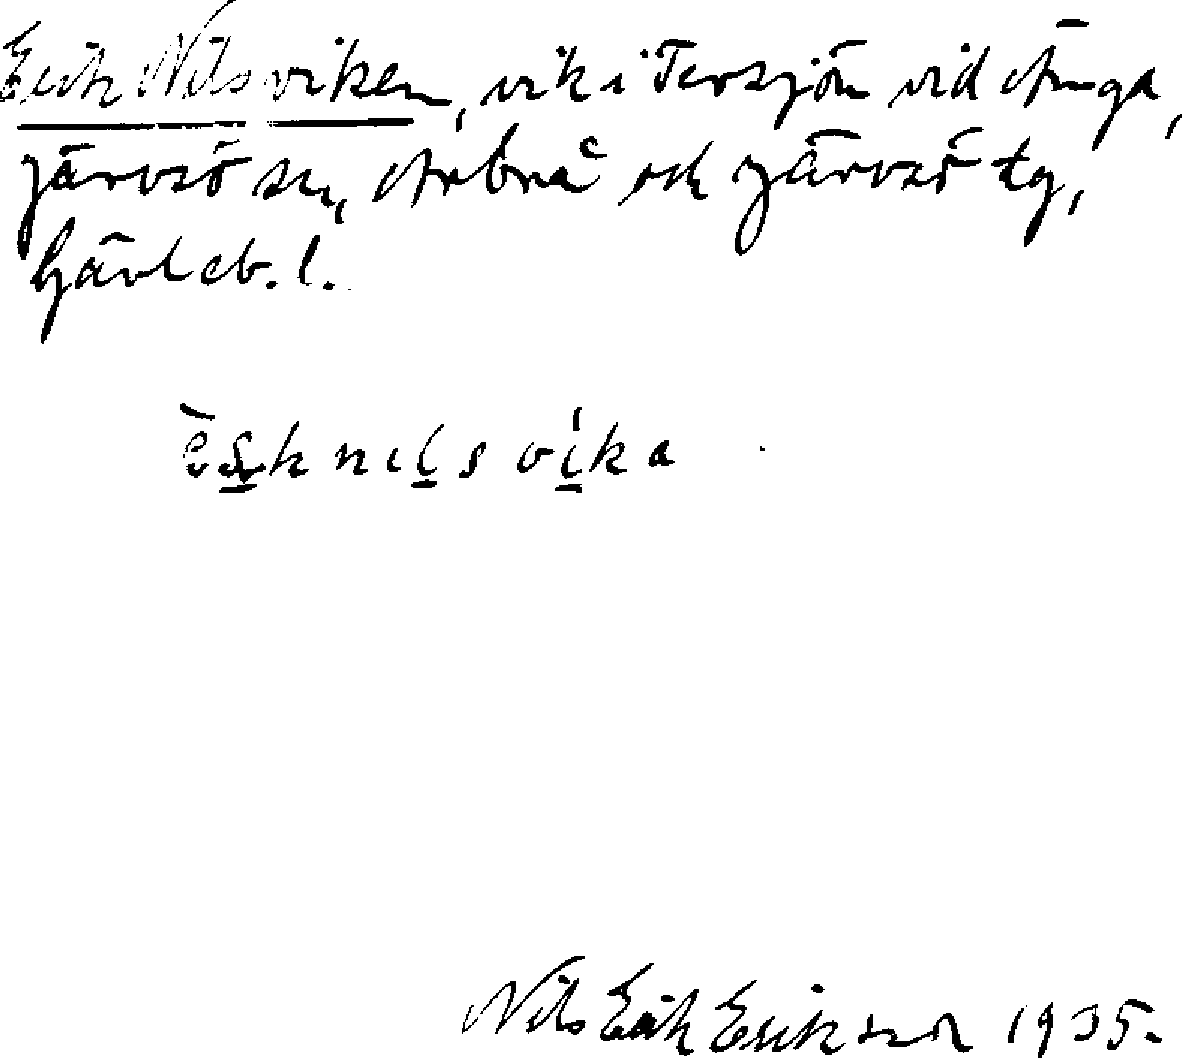 Erik Nilsviken, vik i Tersjön vid Änga,
Järvsö sn, Arbrå och Järvsö tg,
Gävleb. l.
nilsvika
Nils Erik Erikson 1935.